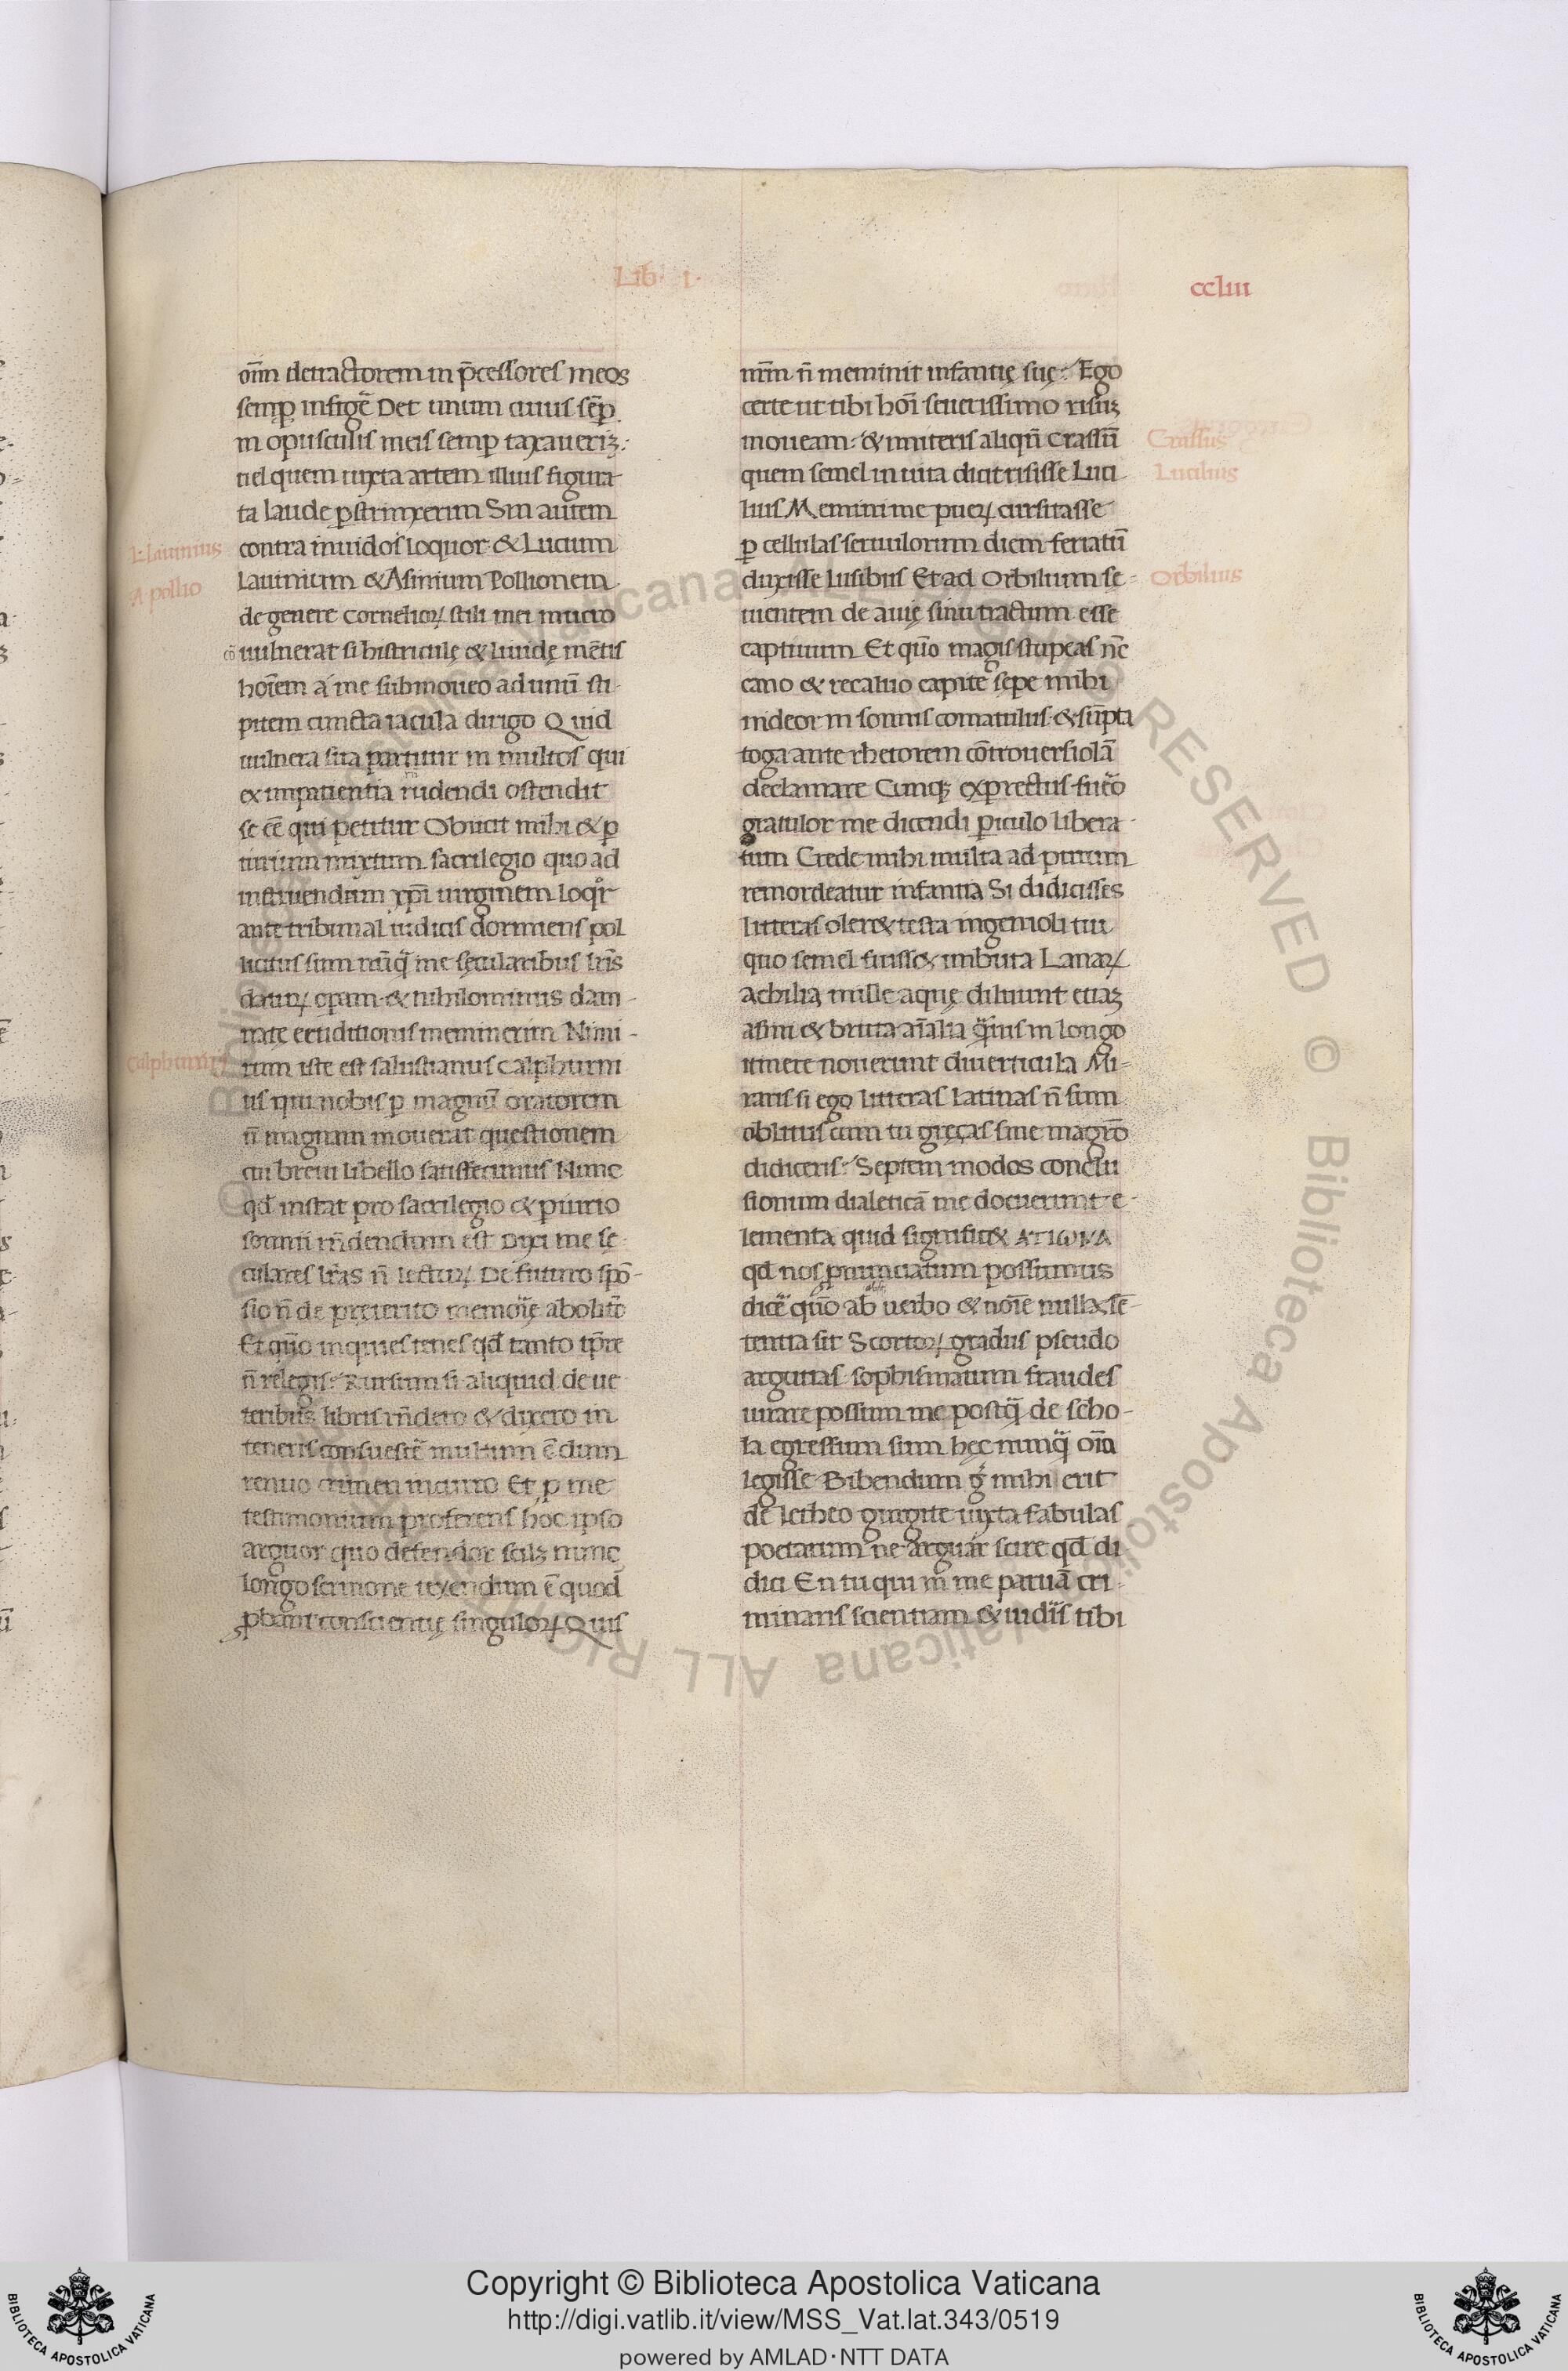 Lib· i·
ccliii
om̄n detractorem in p̄cessores meos
semꝑ infigē Det unum cuius sēp
in opusculis meis semꝑ taxaueriz:
uel quem iuxta artem illius figura
ta laude ꝑstrinxerim Sin autem
L. lauinius
contra inuidos loquor· & Lucium
A pollio
Lauinium & Asinium Pollionem
de genere Corneliorꝝ stili mei mucro
uulnerat si histriculę & liuidę mētis
hoīem a me submoueo ad unū sti
pitem cuncta iacula dirigo Quid
uulnera sua partitur in multos qui
ex impatientia rudendi ostendit
se eē qui petitur Obiicit mihi & ꝑ
iurium mixtum sacrilegio quo ad
instruendum xp̄i uirginem loqr̄
ante tribunal iudicis dormiens pol
licitus sum nūq̄ me sęcularibus lr̄is
daturꝝ opam· & nihilominus dam-
natę eruditionis meminerim Nimi-
Calphurni
rum iste est salustianus Calphurni
us qui nobis ꝑ magnū oratorem
n̄ magnam mouerat questionem
cui breui libello satisfecimus Nunc
qd̄ instat pro sacrilegio & ꝑiurio
somnii rn̄dendum est Dixi me se
culares lr̄as n̄ lecturꝝ De futuro spō-
sio n̄ de preterito memorię abolitō
Et quō inquies tenes qd̄ tanto tp̄re
n̄ relegis: Rursum si aliquid de ue
teribuz libris rn̄dero & dixero in
teneris consuescē multum ē dum
renuo crimen incurro Et ꝓ me
testimonium proferens hoc ipso
arguor quo defendor scilz nunc
longo sermone texendum ē quod
ꝓbant conscientię singulorꝝ Quis
nrm̄ n̄ meminit infantię suę: Ego
certe ut tibi hoī seuerissimo risuz
Crassus
moueam: & imiteris aliqn̄ Crassū
Lucilius
quem semel in uita dicit risisse Luci
lius Memini me puerꝝ cursitasse
ꝑ cellulas seruulorum diem feriatū
Orbilius
duxisse lusibus Et ad Orbilium sę-
uientem de auię sinu tractum esse
captiuum Et quō magis stupeas nc̄
cano & recaluo capite sepe mihi
uideor in somnis comatulus· & sūpta
toga ante rhetorem cōtrouersiolā
declamare Cumqꝫ experrectus fuero
gratulor me dicendi ꝑiculo libera
tum Crede mihi multa ad purum
remordeatur infantia Si didicisses
litteras oler& testa ingenioli tui
quo semel fuiss& imbuta Lanarꝝ
achilia mille aquę diluunt etiaz
asini & bruta aīalia q̄uis in longo
itinere nouerunt diuerticula Mi-
raris si ego litteras latinas n̄ sum
oblitus cum tu gręcas sine magrō
didiceris: Septem modos conclu
sionum dialeticā me docuerunt e-
lementa quid signific&
qd̄ nos pnunciatum possumus
dicē quō ab uerbo & noīe nulla sē-
tentia sit Scortorꝝ gradus pseudo
argutas sophismatum fraudes
iurare possum me postq̄ de scho-
la egressum sum hęc nunq̄ oīa
legisse Bibendum ḡ mihi erit
de letheo gurgite iuxta fabulas
poetarum ne arguar scire qd̄ di
dici En tu qui in me paruā cri
minaris scientiam & uidis̄ tibi
Copyright © Biblioteca Apostolica Vaticana
http://digi.vatlib.it/view/MSS_Vat.lat.343/0519
powered by AMLAD·NTT DATA